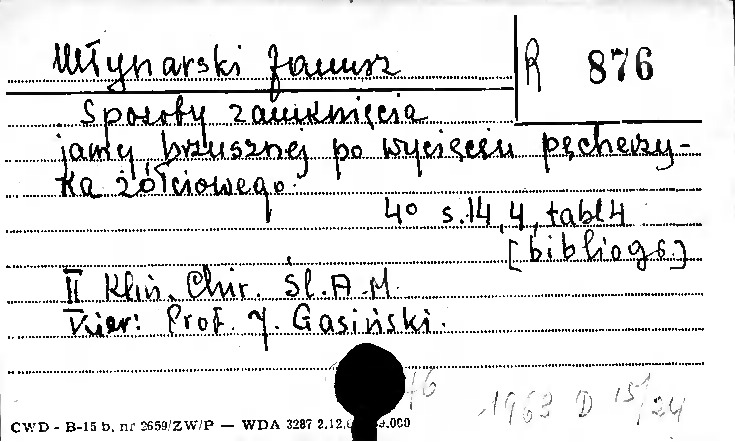 Młynarski Janusz
R 876
Sposoby zamknięcia
jamy brzusznej po wycięciu pęcherzy-
ka żółciowego.
4° s.14, 4, tabl 4
[bibliogr.]
II Klin. Chir. Śl.A.M.
Kier: Prof. J. Gasiński.
1963 D 15/24
CWD - B-15 b, nr 2659/ZW/P — WDA 3287 2.12.